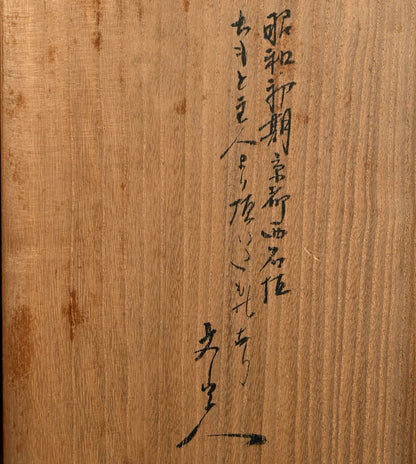 昭和初期京都西石垣
ちもと主人より頂いたものなり